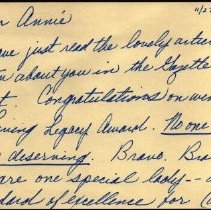 r Annie
11/2
ve just read the lovely artic
n about you in the Gazette
t. Congratulations on win
ning Legacy Award. No one
deserving Bravo. Bra
are one special lady--a
dard of excellence for